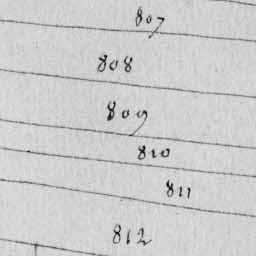 807
808
809
810
811
812